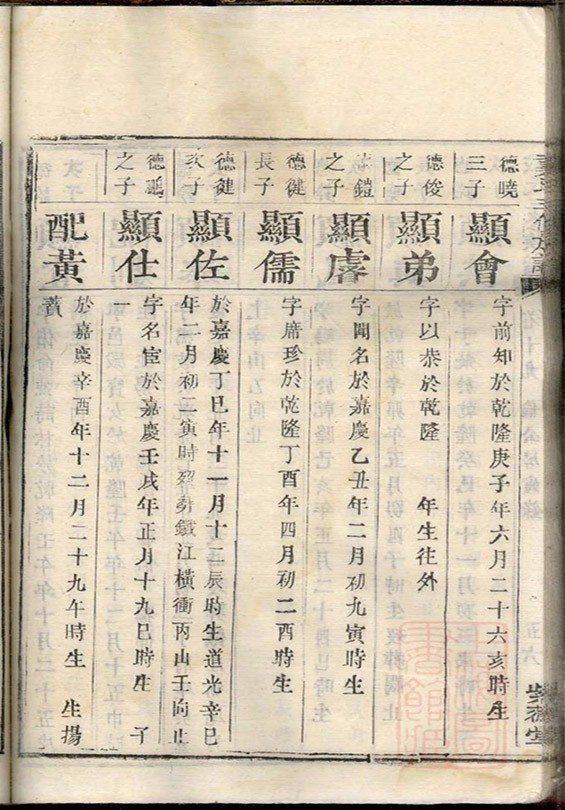 德曉
三子
顯會
字前知於乾隆庚子年六月二十六亥時生
德俊
之子
顯弟
字以恭於乾隆 年生往外
鎧
之子
顯
字聞名於嘉慶乙丑年二月初九寅時生
德健
長子
顯儒
字席珍於乾隆丁酉年四月初二酉時生
德健
次子
顯佐
於嘉慶丁巳年十一月十三辰時生道光辛巳
年二月初二寅時歿葬鐵江橫衝丙山壬向止
德
之子
顯仕
字名宦於嘉慶壬戌年正月十九巳時生 子
一
配黃
於嘉慶辛酉年十二月二十九午時生 生揚
蕢